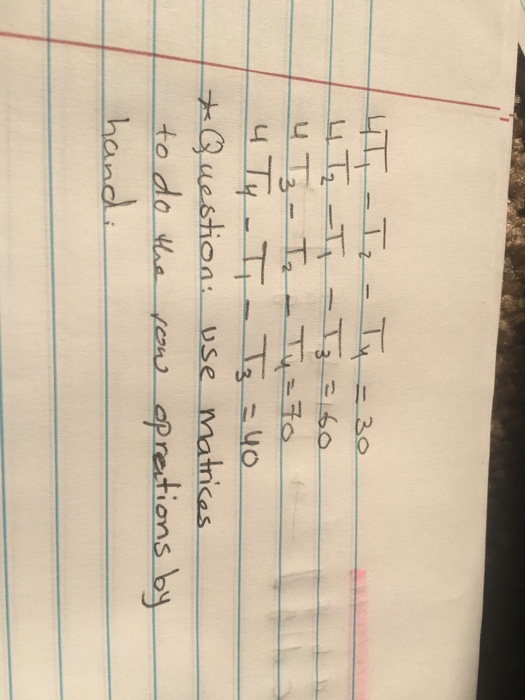 4T₁ - T₂ - T₄ = 30
4T₂ - T₁ - T₃ = 60
4T₃ - T₂ - T₄ = 70
4T₄ - T₁ - T₃ = 40
*Question: use matrices
to do the row oprations by
hand.